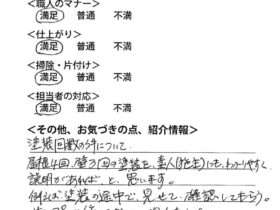 <職人のマナー>
満足 普通 不満
<仕上がり>
満足 普通 不満
<掃除・片付け>
満足 普通 不満
<担当者の対応>
満足 普通 不満
<その他、お気づきの点、紹介情報>
塗装回数の件について
屋根4回、壁3回の塗装を、素人(施主)にも、わかりやすく、
説明があれば、と思います。
例えば塗装の途中で、見せて、確認してもらう。